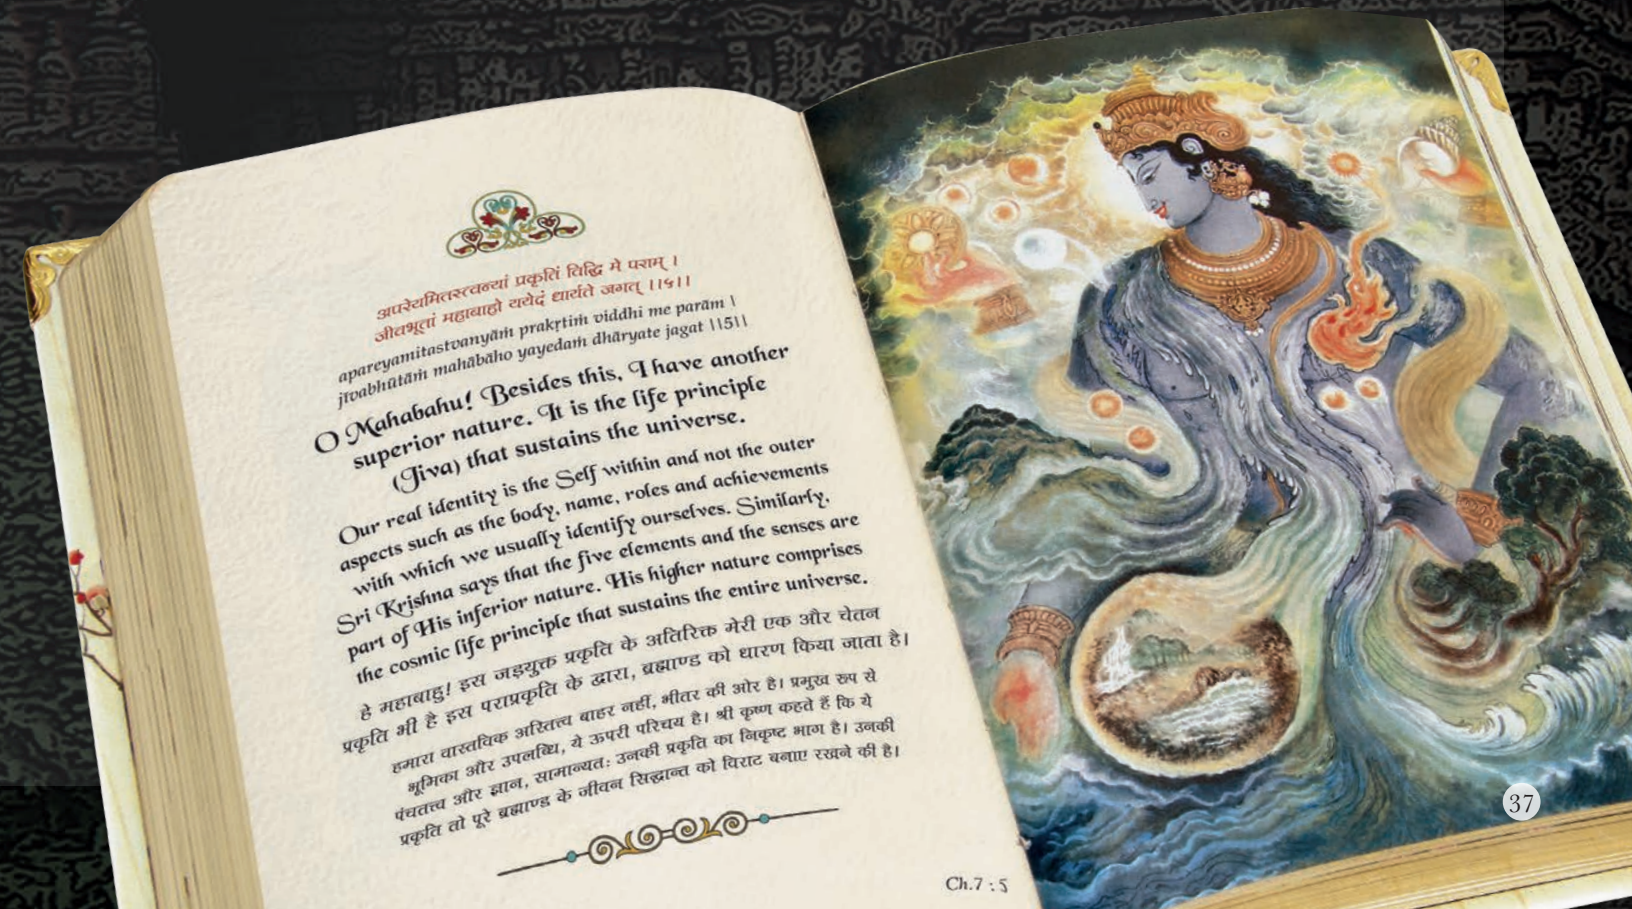 अपरेयमितस्त्वन्यां प्रकृतिं विद्धि मे पराम् ।
जीवभूतां महाबाहो ययेदं धार्यते जगत् ।।५।।
apareyamitastvanyāṁ prakṛtiṁ viddhi me parām |
jīvabhūtāṁ mahābāho yayedaṁ dhāryate jagat ||5||
O Mahabahu! Besides this, I have another
superior nature. It is the life principle
(Jiva) that sustains the universe.
Our real identity is the Self within and not the outer
aspects such as the body, name, roles and achievements
with which we usually identify ourselves. Similarly,
Sri Krishna says that the five elements and the senses are
part of His inferior nature. His higher nature comprises
the cosmic life principle that sustains the entire universe.
हे महाबाहु! इस जड़युक्त प्रकृति के अतिरिक्त मेरी एक और चेतन
प्रकृति भी है इस पराप्रकृति के द्वारा, ब्रह्माण्ड को धारण किया जाता है।
हमारा वास्तविक अस्तित्त्व बाहर नहीं, भीतर की ओर है। प्रमुख रूप से
भूमिका और उपलब्धि, ये ऊपरी परिचय है। श्री कृष्ण कहते हैं कि ये
पंचतत्त्व और ज्ञान, सामान्यतः उनकी प्रकृति का निकृष्ट भाग है। उनकी
प्रकृति तो पूरे ब्रह्माण्ड के जीवन सिद्धान्त को विराट बनाए रखने की है।
Ch.7 : 5
37